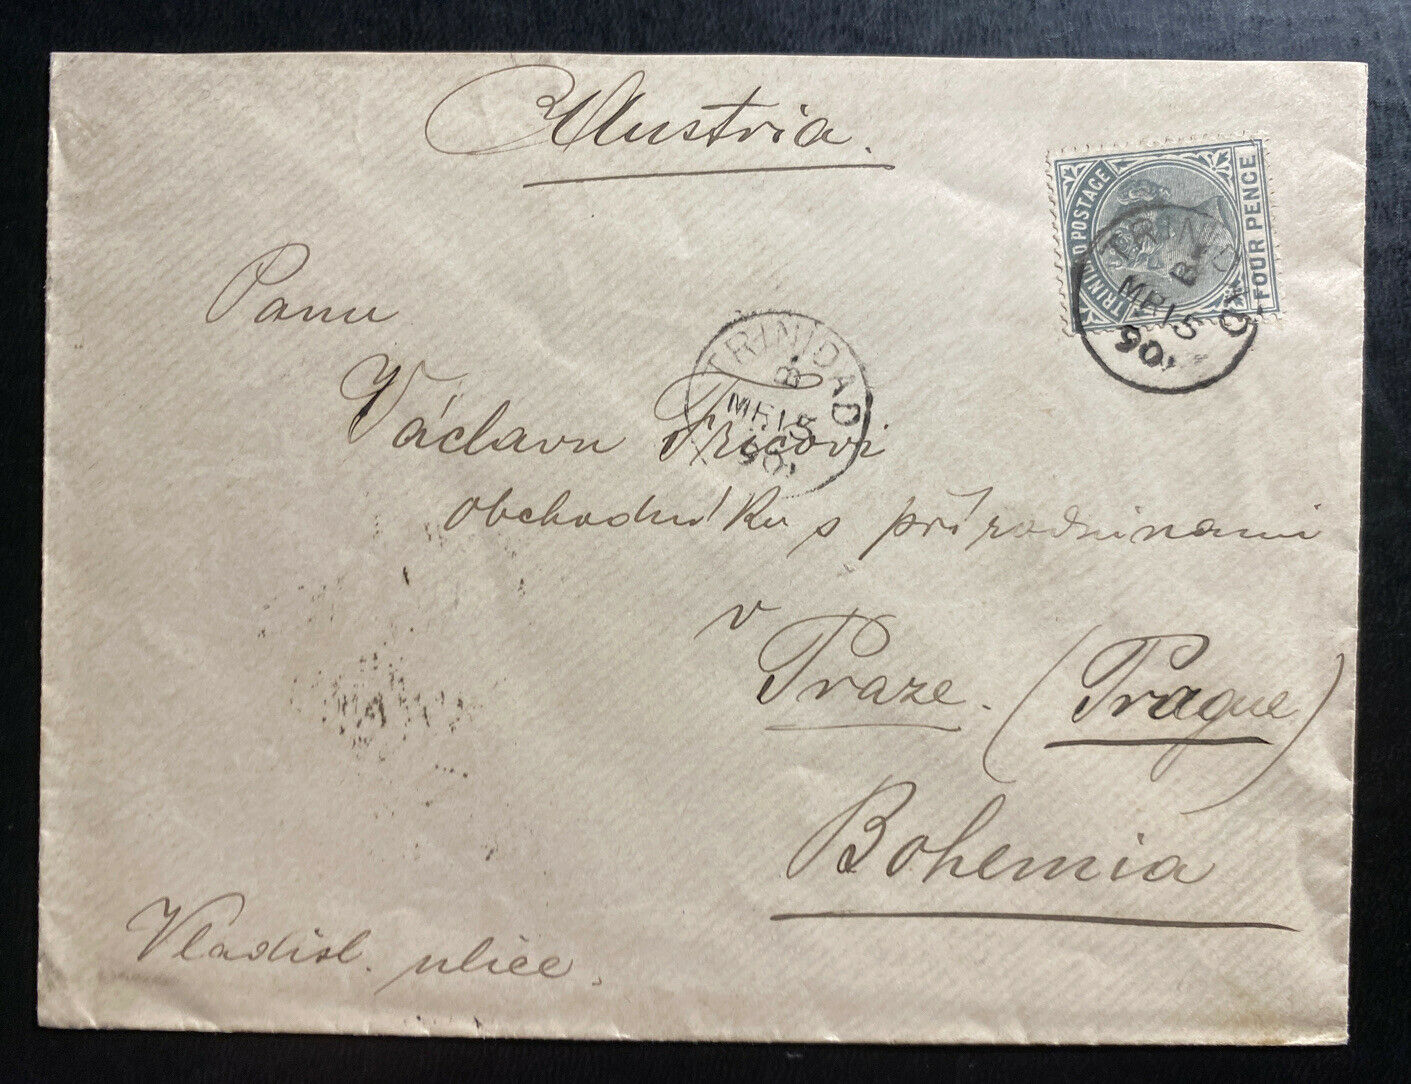 Austria.
TRINIDAD POSTAGE
FOUR PENCE
TRINIDAD
B
MR 15
Panu
TRINIDAD
B
MR 15
Václavu Fričovi
obchodníku s přírodninami
v
Praze. (Prague)
Bohemia
Vladisl. ulice.